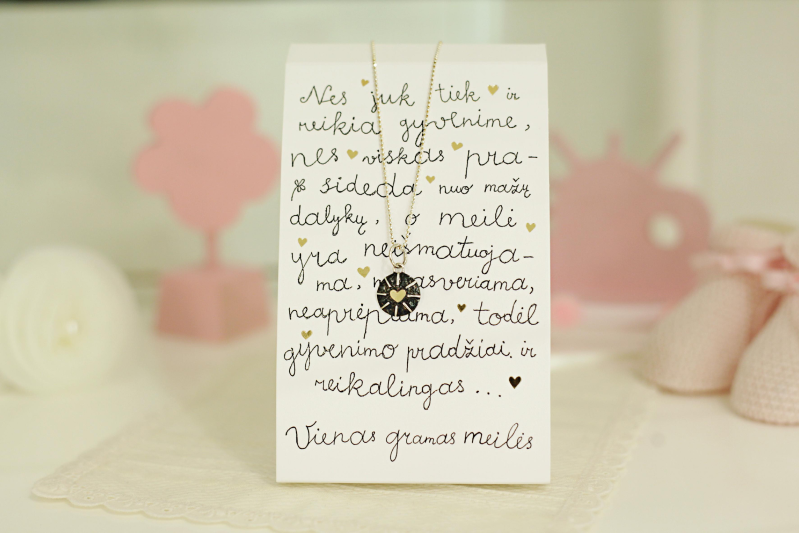 Nes juk tiek ir
reikia gyvenime,
nes viskas pra-
sideda nuo mažų
dalykų, o meilė
yra neišmatuoja-
ma, nepasveriama,
neaprėpiama, todėl
gyvenimo pradžiai ir
reikalingas ...
Vienas gramas meilės